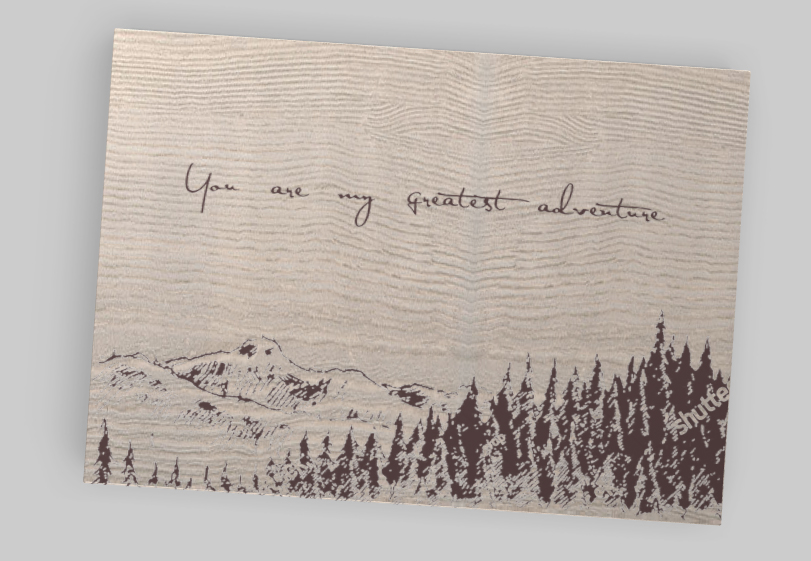 You are my greatest adventure
shutte